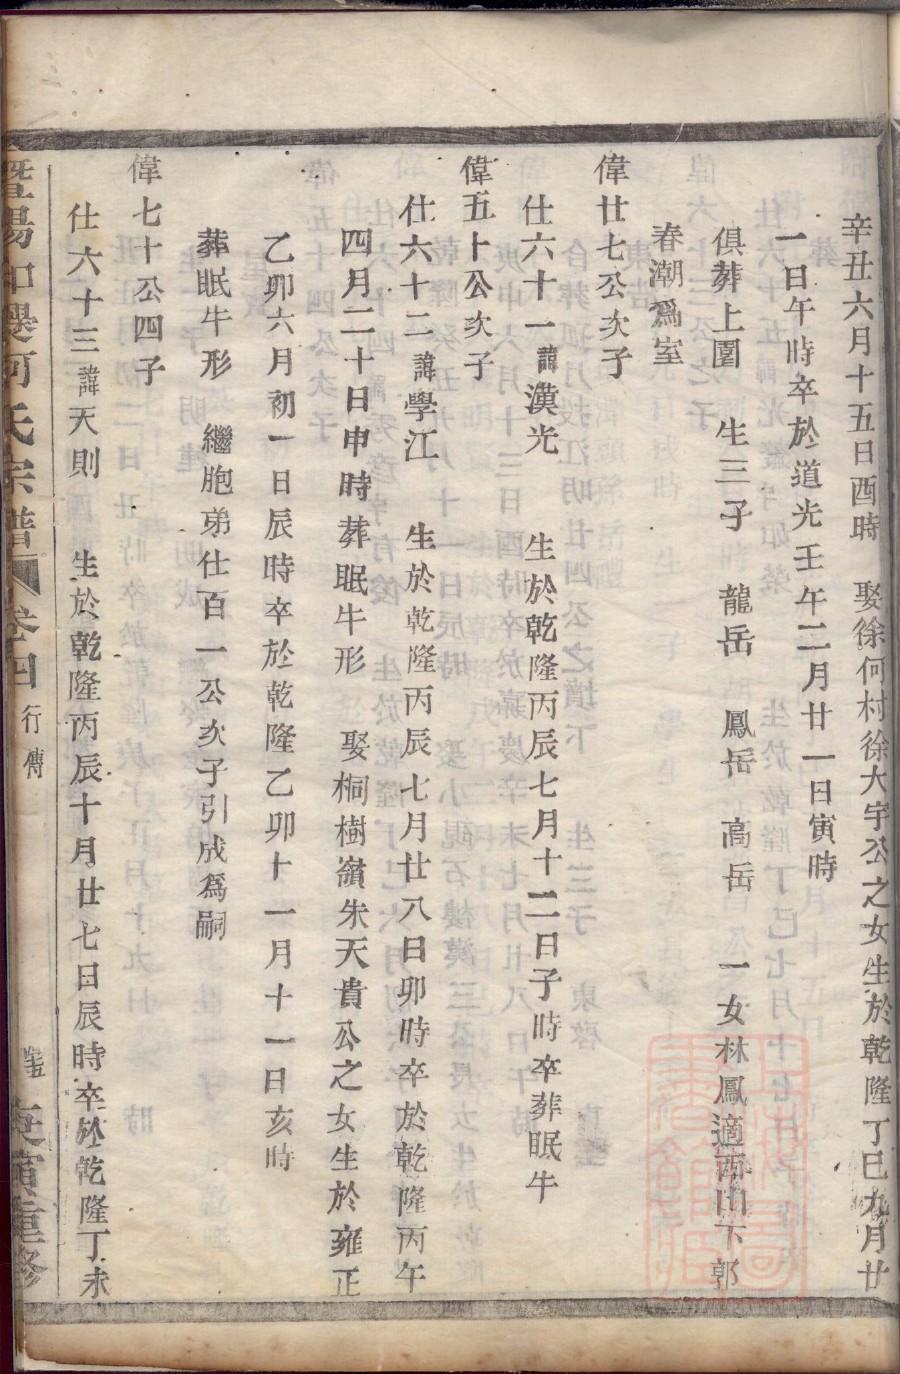 辛丑六月十五日酉時　娶徐何村徐大宇公之女生於乾隆丁巳九月廿
一日午時卒於道光壬午二月廿一日寅時
俱葬上園　生三子　龍岳　鳳岳　高岳　一女林鳳適西山下郭
春潮爲室
偉廿七公次子
仕六十一諱漢光　生於乾隆丙辰七月十二日子時卒葬眠牛
偉五十公次子
仕六十二諱學江　生於乾隆丙辰七月廿八日卯時卒於乾隆丙午
四月二十日申時葬眠牛形　娶桐樹嶺朱天貴公之女生於雍正
乙卯六月初一日辰時卒於乾隆乙卯十一月十一日亥時
葬眠牛形　繼胞弟仕百一公次子引成爲嗣
偉七十公四子
仕六十三諱天則　生於乾隆丙辰十月廿七日辰時卒於乾隆丁未
暨陽 河氏宗譜　卷四　行傳　庚寅重修